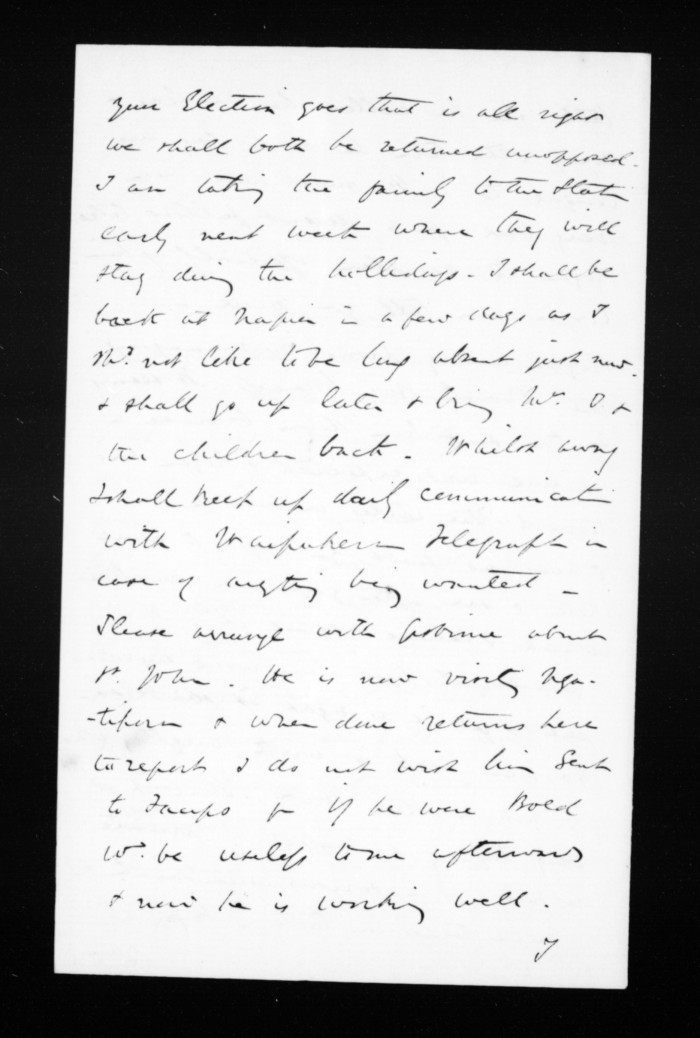 your Election goes that is all right
we shall both be returned unopposed.
I am taking the family to the Station
early next week where they will
stay during the hollidays - I shall be
back at Napier in a few days as I
shd. not like to be long absent just now.
& shall go up later & bring Mrs. O. &
the children back - Whilst away
I shall keep up daily communication
with Waipukurau Telegraph in
case of anything being wanted -
Please arrange with about
St. John. He is now visiting Nga-
-tiporou & when done returns here
to report I do not wish him Sent
to Taupo for if he were Bold
wd. be useless to me afterwards
& now he is working well.
I